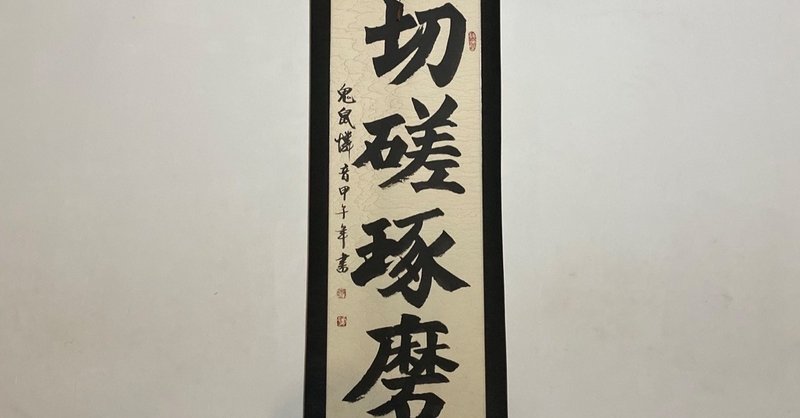 切磋琢磨
鬼鼠憐音甲午年書